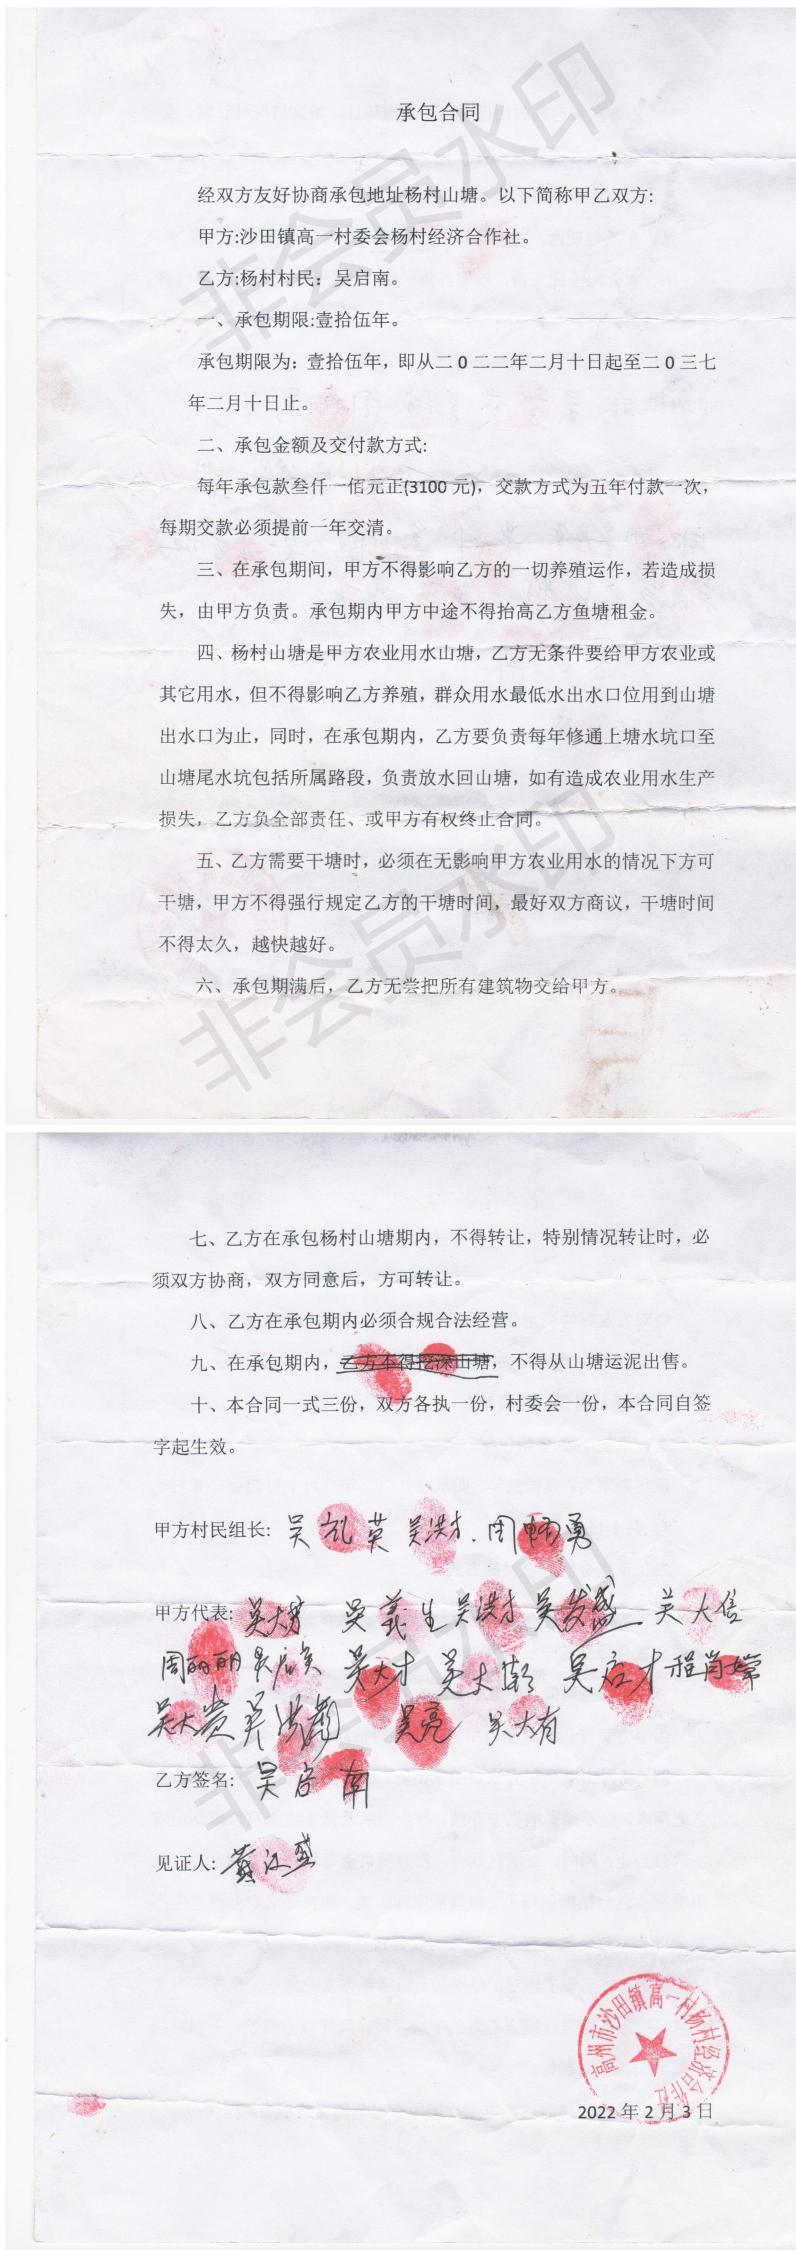 承包合同
经双方友好协商承包地址杨村山塘。以下简称甲乙双方:
甲方:沙田镇高一村委会杨村经济合作社。
乙方:杨村村民：吴启南。
一、承包期限:壹拾伍年。
承包期限为：壹拾伍年，即从二0二二年二月十日起至二0三七
年二月十日止。
二、承包金额及交付款方式:
每年承包款叁仟一佰元正(3100元)，交款方式为五年付款一次，
每期交款必须提前一年交清。
三、在承包期间，甲方不得影响乙方的一切养殖运作，若造成损
失，由甲方负责。承包期内甲方中途不得抬高乙方鱼塘租金。
四、杨村山塘是甲方农业用水山塘，乙方无条件要给甲方农业或
其它用水，但不得影响乙方养殖，群众用水最低水出水口位用到山塘
出水口为止，同时，在承包期内，乙方要负责每年修通上塘水坑口至
山塘尾水坑包括所属路段，负责放水回山塘，如有造成农业用水生产
损失，乙方负全部责任、或甲方有权终止合同。
五、乙方需要干塘时，必须在无影响甲方农业用水的情况下方可
干塘，甲方不得强行规定乙方的干塘时间，最好双方商议，干塘时间
不得太久，越快越好。
六、承包期满后，乙方无尝把所有建筑物交给甲方。
非会员水印
非会员水印
七、乙方在承包杨村山塘期内，不得转让，特别情况转让时，必
须双方协商，双方同意后，方可转让。
八、乙方在承包期内必须合规合法经营。
九、在承包期内，乙方不得挖深山塘，不得从山塘运泥出售。
十、本合同一式三份，双方各执一份，村委会一份，本合同自签
字起生效。
甲方村民组长: 吴 英 吴洪才. 周 勇
甲方代表: 吴大 吴义生 吴洪才 吴发盛 吴大信
周丽丽 吴启 吴大才 吴大 吴启才 程肖嫦
吴大贵 吴洪南 吴亮 吴大有
乙方签名: 吴启南
见证人: 黄江盛
非会员水印
高州市沙田镇高一村杨村经济合作社
2022年2月3日